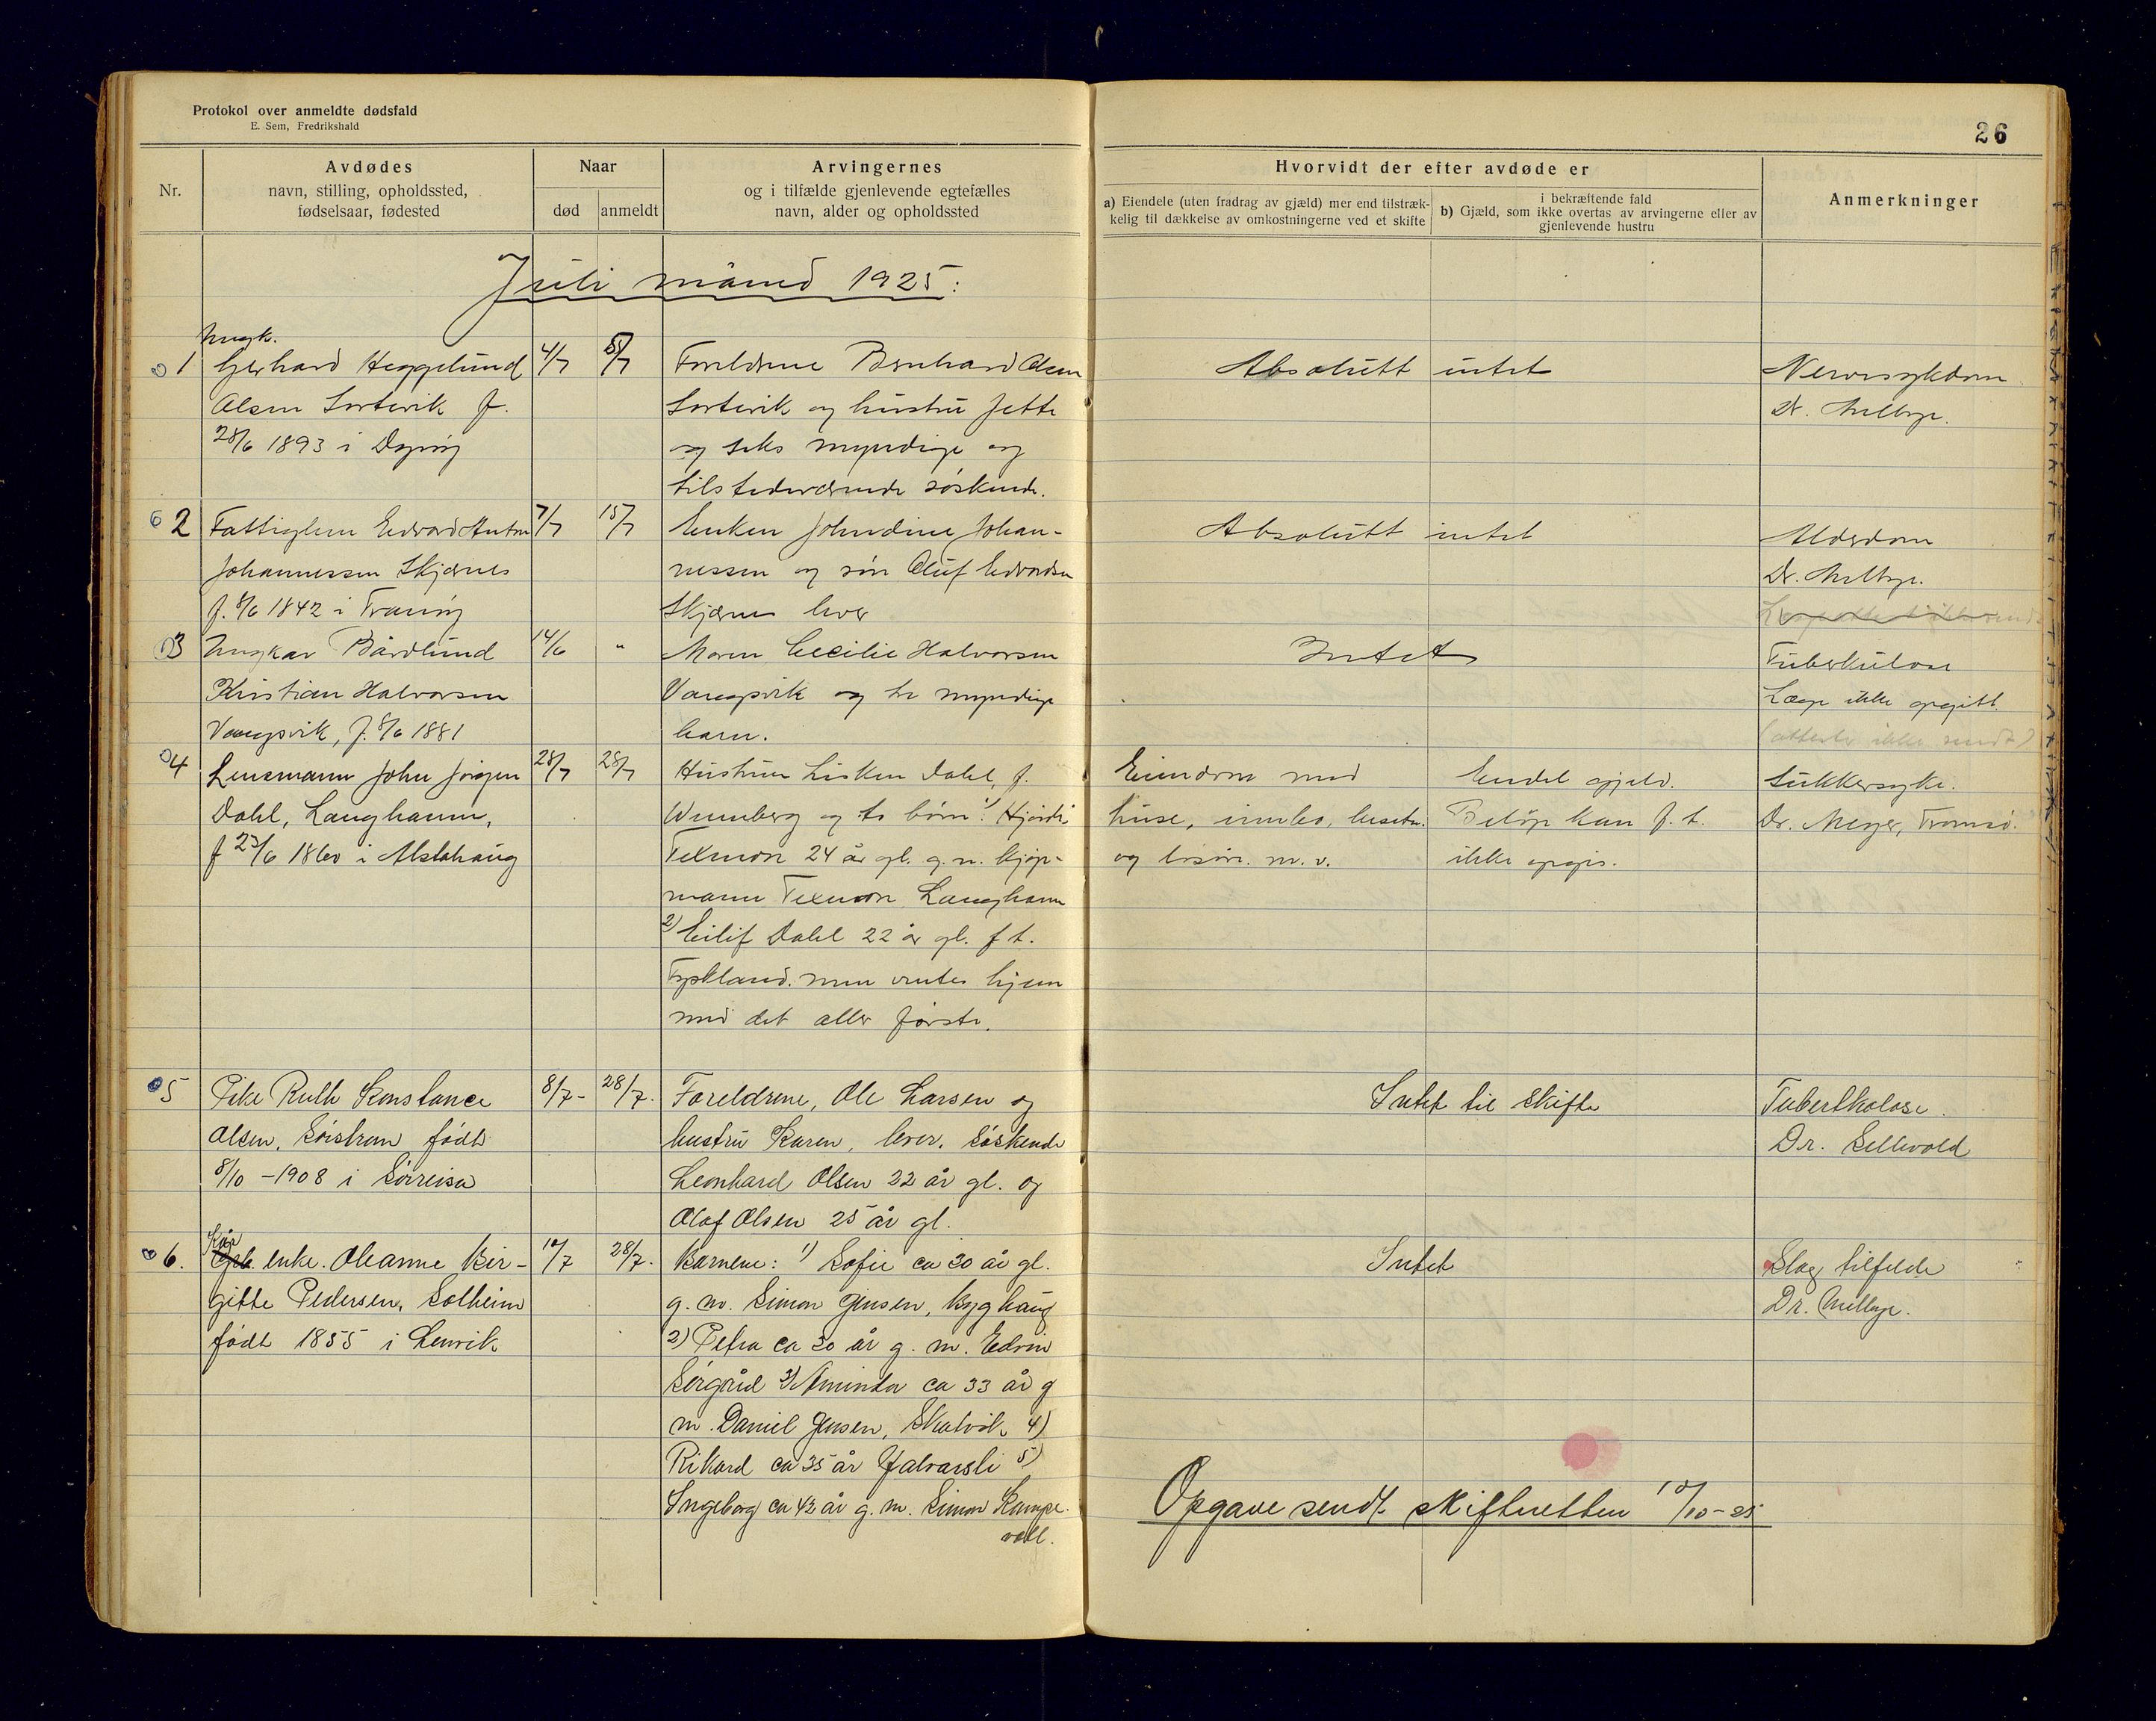 Protokol over anmeldte dødsfald
E. Sem, Fredrikshald
26
Nr.
Avdødes
navn, stilling, opholdssted,
fødselsaar, fødested
Naar
død
anmeldt
Arvingernes
og i tilfælde gjenlevende egtefælles
navn, alder og opholdssted
Hvorvidt der efter avdøde er
a) Eiendele (uten fradrag av gjæld) mer end tilstræk-
kelig til dækkelse av omkostningerne ved et skifte
i bekræftende fald
b) Gjæld, som ikke overtas av arvingerne eller av
gjenlevende hustru
Anmerkninger
Juli måned 1925:
Ungk.
1 Gerhard Heggelund
Olsen Sortevik f.
28/6 1893 i Dyrøy
4/7
Foreldrene Bernhard Olsen
Sortevik og hustru Jette
og seks myndige og
tilstedeværende søskende.
Absolutt intet
Nervesykdom
Dr. Melbye.
2 Fattiglem Edvard Anton
Johannessen Skjærnes
f. 8/6 1842 i Tranøy
7/7
15/7
Enken Johndine Johan-
nessen og søn Oluf Edvardsen
Skjærnes lever
Absolutt intet
Alderdom
Dr. Melbye.
3 Ungkar Bårdlund
Kristian Halvorsen
Vangsvik, f. 8/6 1881
14/6
"
Moren Cecilie Halvorsen
Vangsvik og tre myndige
barn.
Intet
Tuberkulose
Læge ikke opgitt.
(attester ikke sendt)
4 Lensmann John Jørgen
Dahl, Langhamn,
f 23/6 1860 i Alstahaug
28/7
28/7
Hustruen Lisken Dahl, f.
Wennberg og to børn: 1) Hjørdis
Texmon 24 år gl. g.m. kjøp-
mann Texmon Langhamn
2) Eilif Dahl 22 år gl. f t.
Tyskland. men ventes hjem
med det aller første.
Eiendom med
huse, innbo, besetn.
og løsøre. m. v.
Endel gjeld.
Beløp kan f. t.
ikke opgis.
Sukkersyke.
Dr. Meyer, Tromsø.
5 Pike Ruth Konstance
Olsen, Soistrøm født
8/10 - 1908 i Sørreisa
8/7-
28/7.
Foreldrene, Ole Larsen og
hustru Karen, lever. Søskende
Leonhard Olsen 22 år gl. og
Olaf Olsen 25 år gl.
Intet til skifte
Tuberkolose.
Dr. Sellevold
6. Kår
enke. Oleanne Bir-
gitte Pedersen, Solheim
født 1855 i Lenvik
10/7
28/7.
Barnene: 1) Sofie ca 30 år gl.
g. m. Simon Jensen, Byghaug
2) Petra ca 30 år g. m. Edvin
Sørgård 3) Aminda ca 33 år g
m. Daniel Jensen, Skatvik 4)
Rikard ca 35 år Halvarsli 5)
Ingeborg ca 42 år g. m. Simon Kampe-
voll.
Intet
Slag tilfelde
Dr. Melbye.
Opgave sendt skifteretten 10/10-25